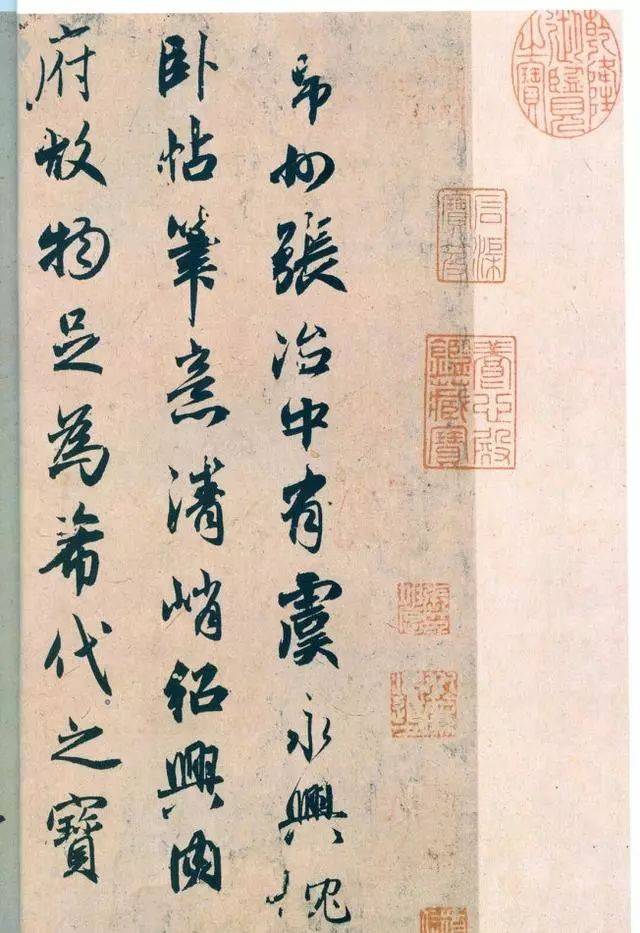 乾隆御覽之寶
石渠寶笈
養心殿鑑藏寶
州張治中有虞永興枕
卧帖筆意清峭紹興內
府故物足為希代之寶